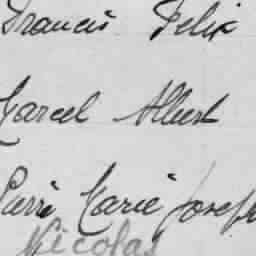 Francis Felix
Marcel Albert
Pierre Marie Joseph
Nicolas